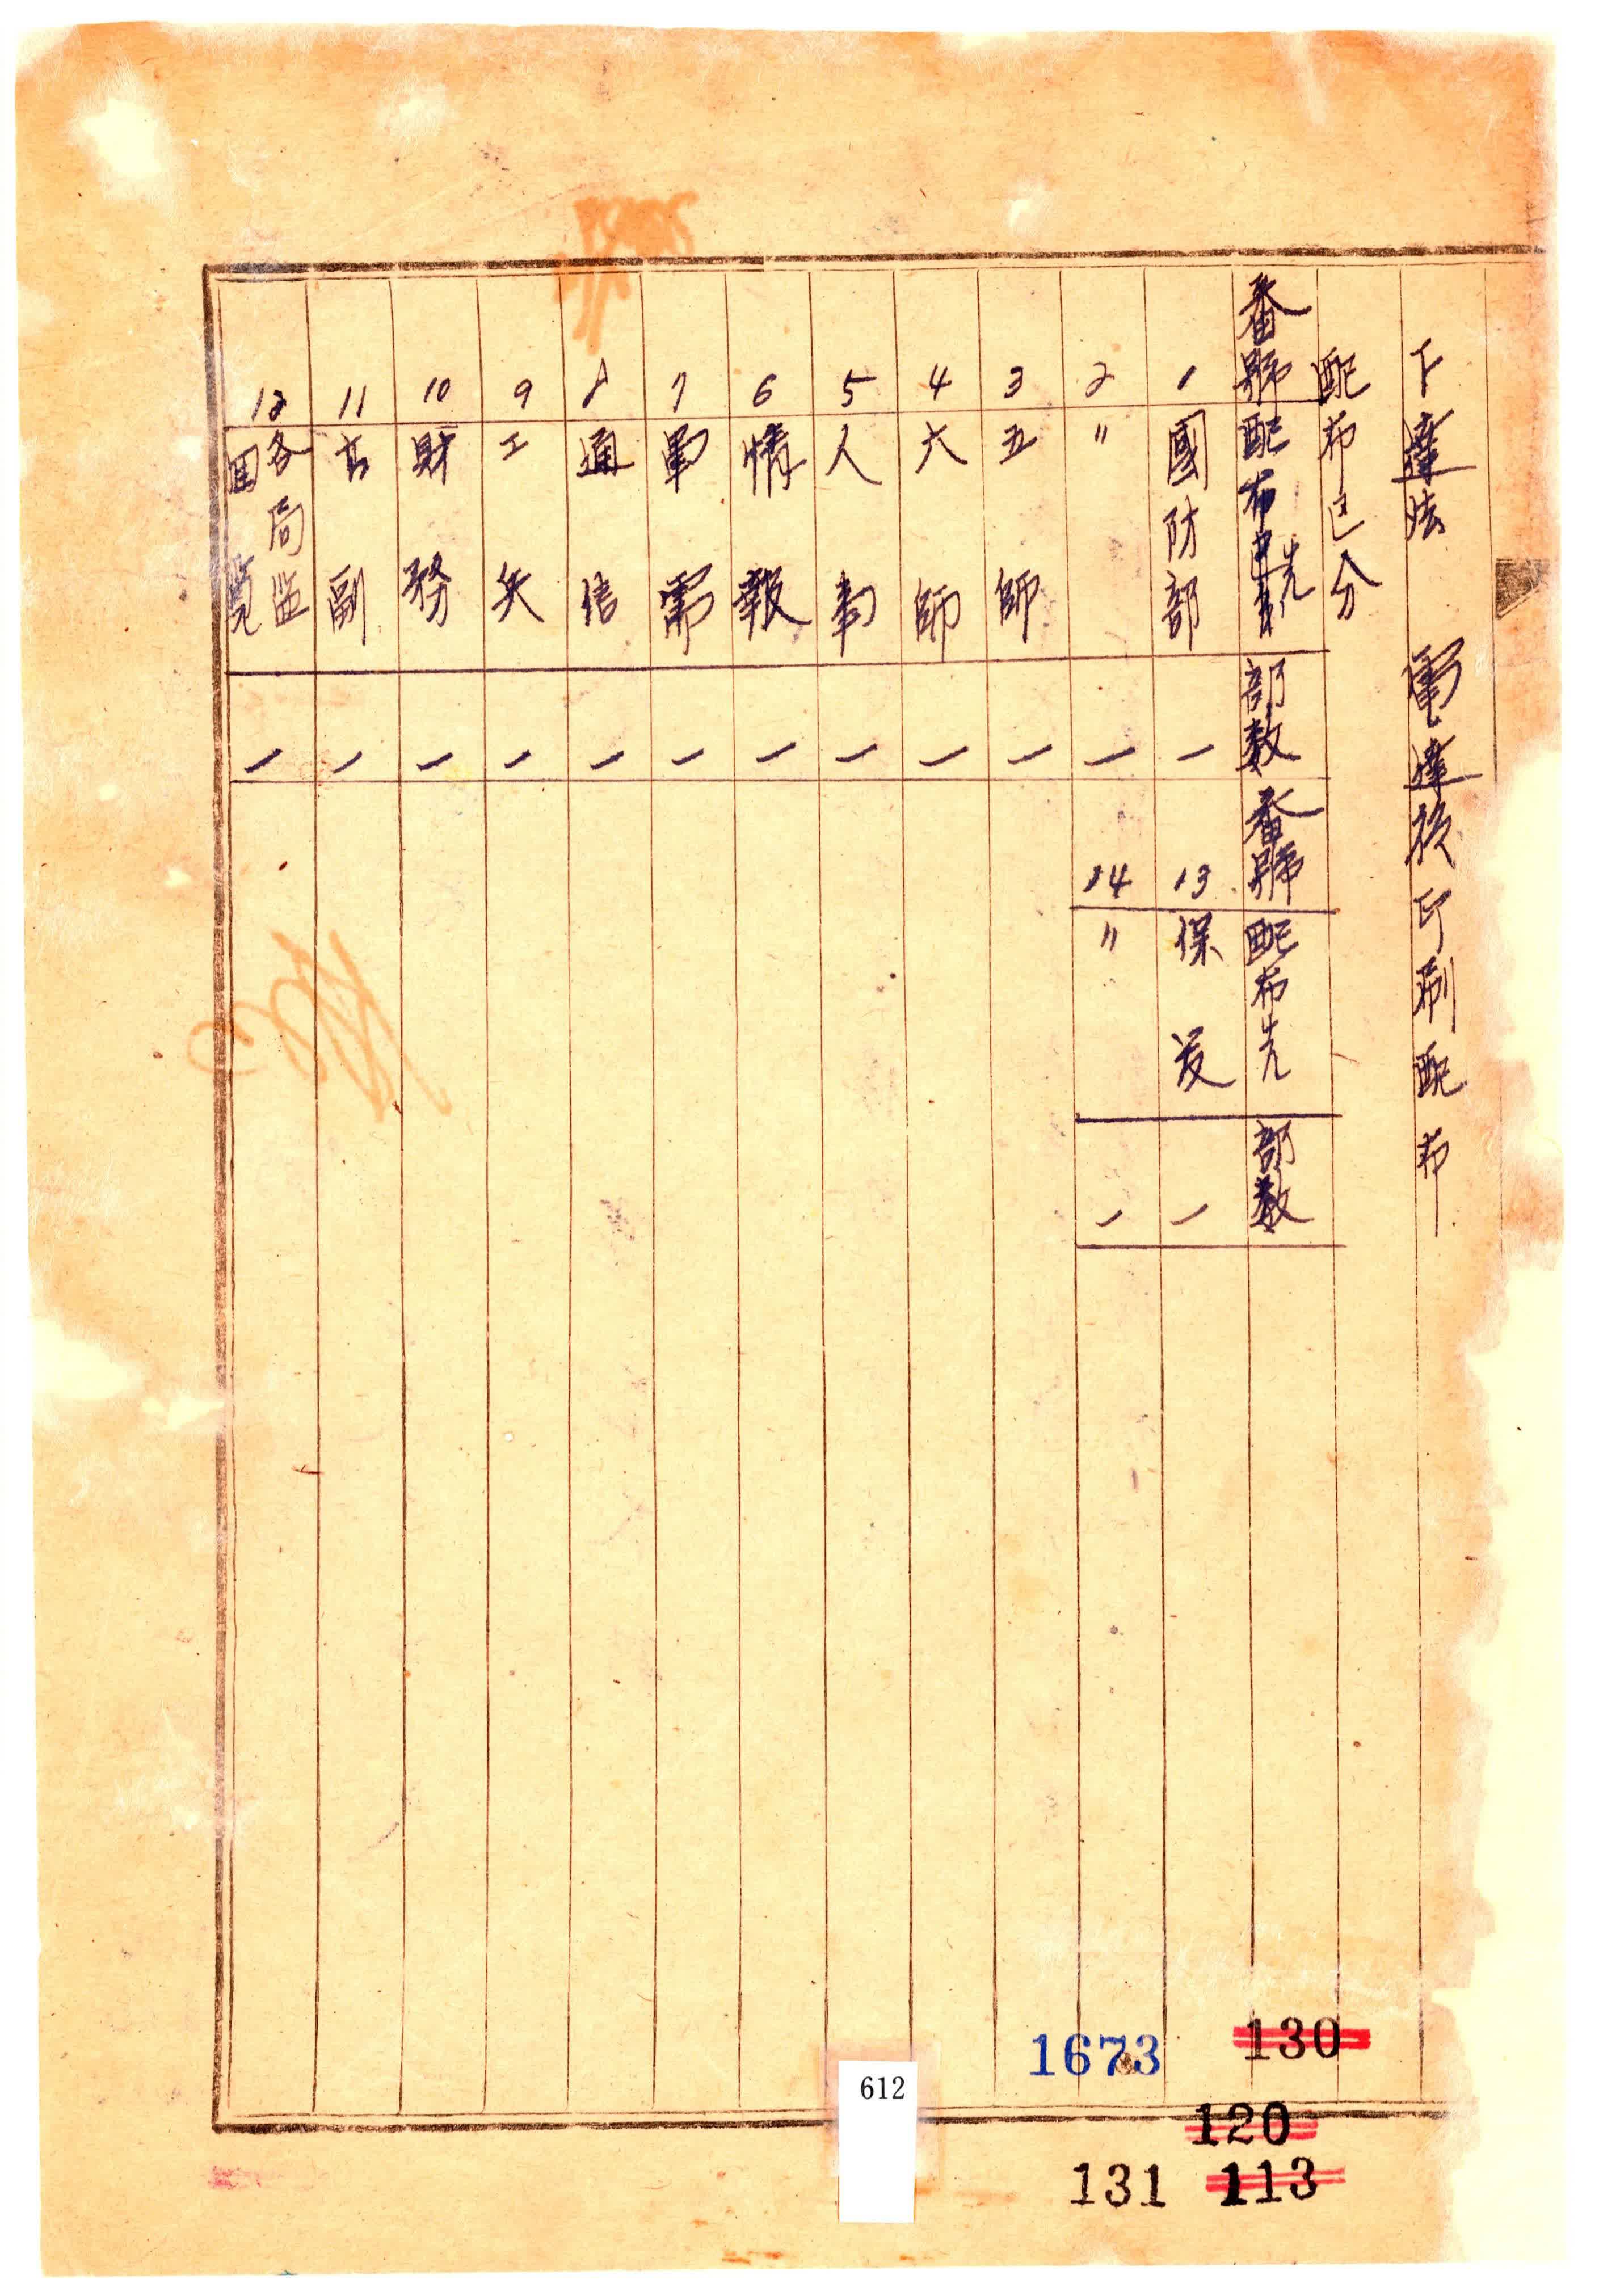 下達法 電達後印刷配布
配布区分
番號 配布先 部數 番號 配布先 部數
1 國防部 一 13 保 一
2 〃 一 14 〃 一
3 五師 一
4 六師 一
5 人 一
6 情報 一
7 軍需 一
8 通信 一
9 工兵 一
10 財務 一
11 高副 一
12 各局監回覧 一
1673
130
612
120
131
113